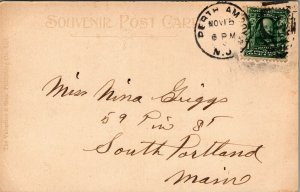 SOUVENIR POST CARD
PERTH AMBOY
NOV 15
6 PM
N.J.
Miss Nina Griggs
59 Pin St
South Portland
Main